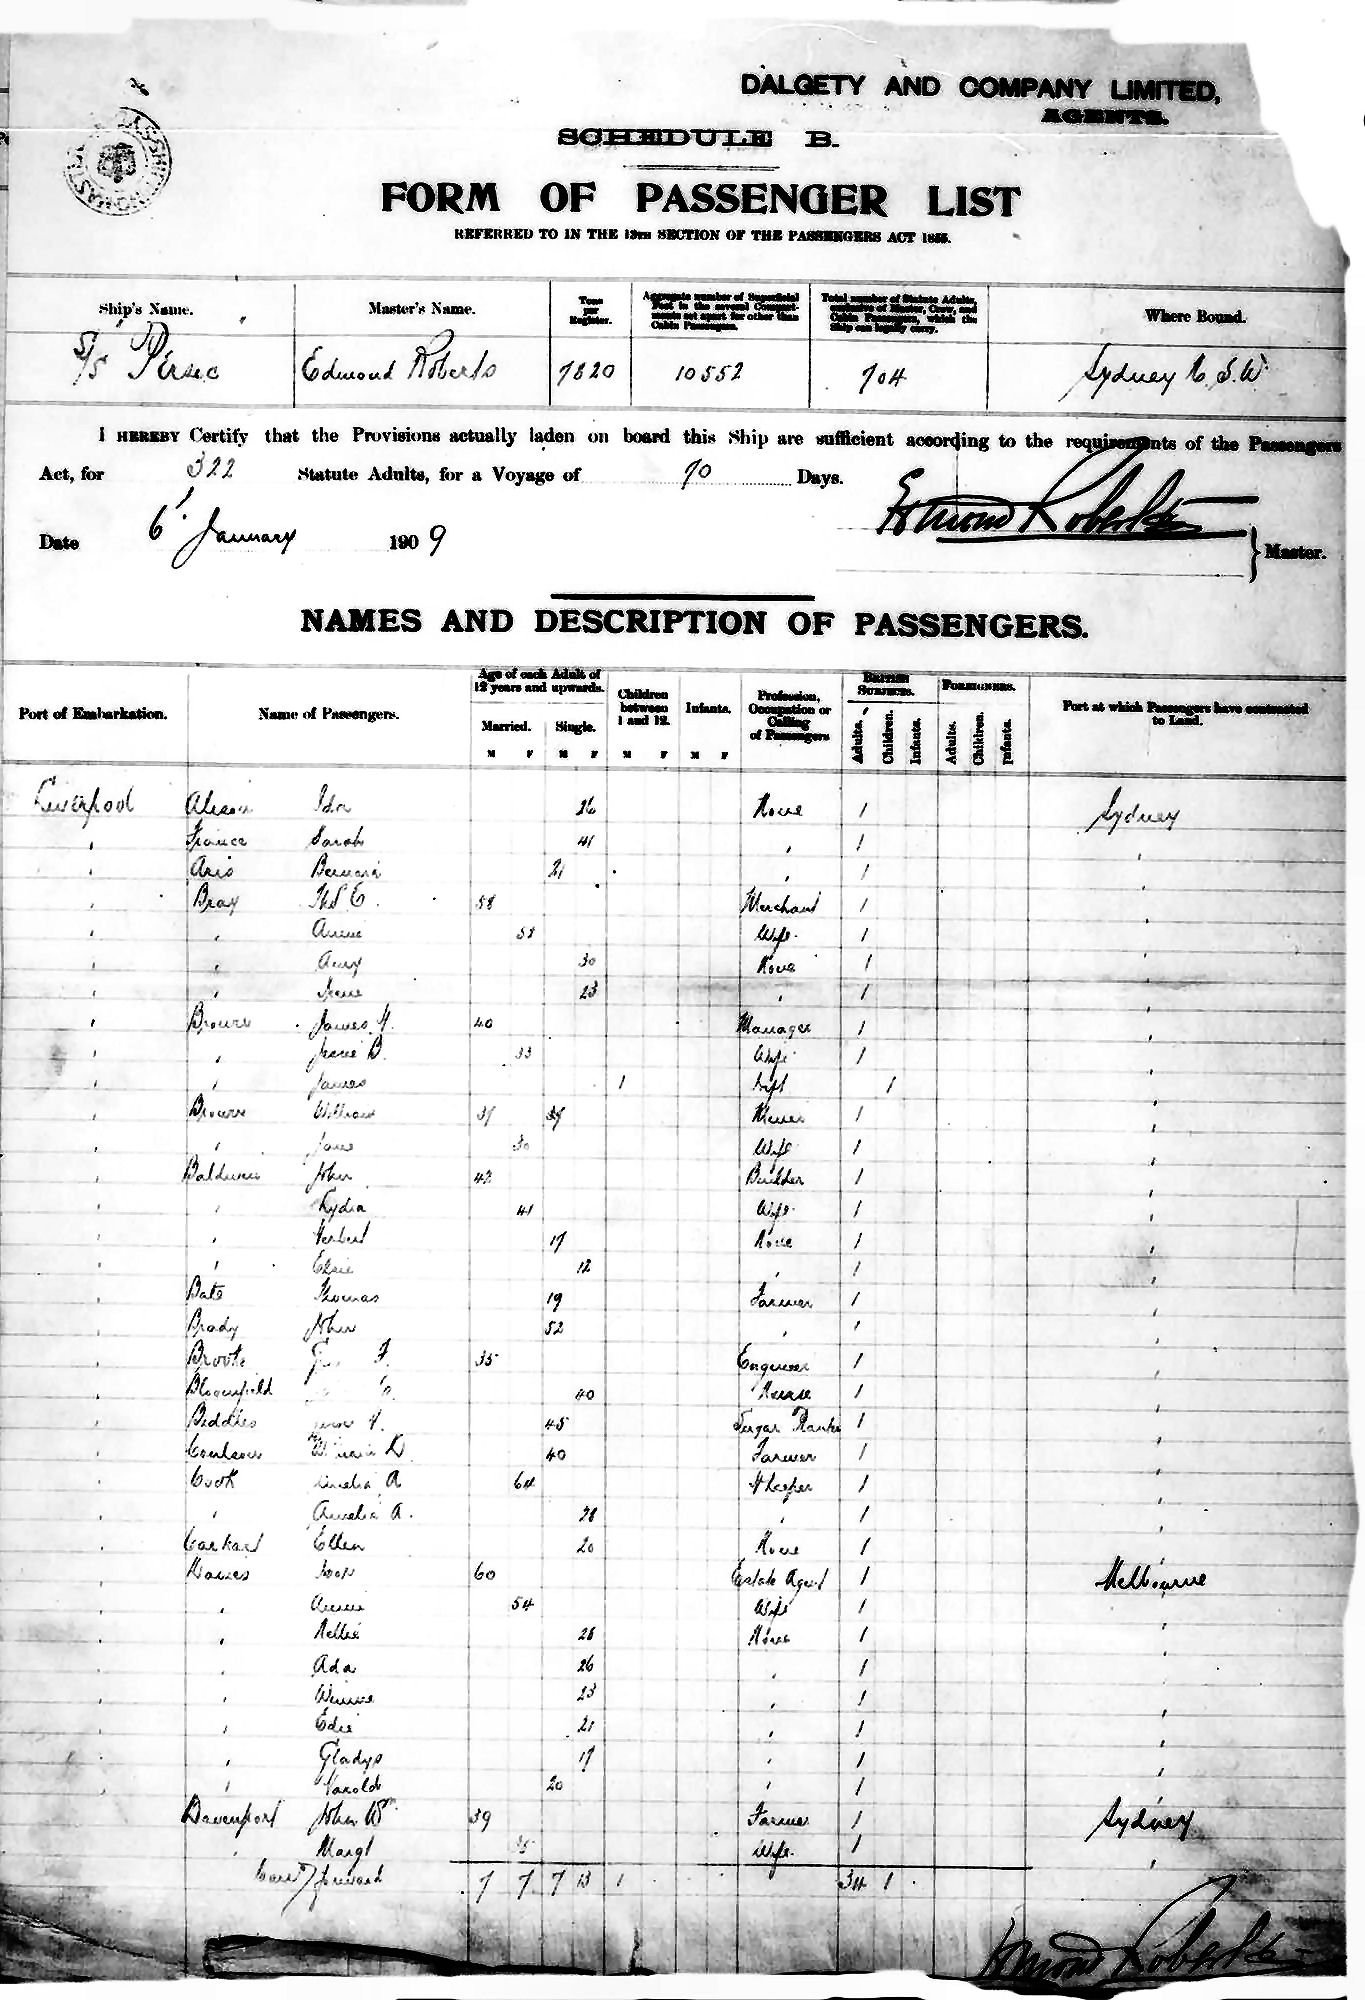 DALGETY AND COMPANY LIMITED,
AGENTS.
SCHEDULE B.
FORM OF PASSENGER LIST
REFERRED TO IN THE 13TH SECTION OF THE PASSENGERS ACT 1855.
Ship's Name. Master's Name. Tons per Register. Aggregate number of Superficial Feet in the several Compartments set apart for other than Cabin Passengers. Total number of Statute Adults, exclusive of Master, Crew, and Cabin Passengers, which the Ship can legally carry. Where Bound.
S/S Persic Edmond Roberts 7820 10552 704 Sydney N.S.W.
I HEREBY Certify that the Provisions actually laden on board this Ship are sufficient according to the requirements of the Passengers
Act, for 322 Statute Adults, for a Voyage of 70 Days.
Edmond Roberts
Date 6 January 1909 Master.
NAMES AND DESCRIPTION OF PASSENGERS.
Port of Embarkation. Name of Passengers. Age of each Adult of 12 years and upwards. Married. Single. Children between 1 and 12. Infants. Profession, Occupation or Calling of Passengers BRITISH SUBJECTS. FOREIGNERS. Port at which Passengers have contracted to Land.
M F M F M F M F Adults. Children. Infants. Adults. Children. Infants.
Liverpool Alison Ida 26 None 1 Sydney
" France Sarah 41 " 1 "
" Aris Bernard 21 " 1 "
" Bray Thos E. 58 Merchant 1 "
" " Annie 58 Wife 1 "
" " Amy 30 None 1 "
" " Irene 23 " 1 "
" Brown James H. 40 Manager 1 "
" " Jessie B. 33 Wife 1 "
" " James 1 1 "
" Brown William 37 Miner 1 "
" " Jane 30 Wife 1 "
" Baldwin John 42 Builder 1 "
" " Lydia 41 Wife 1 "
" " Herbert 17 None 1 "
" " Elsie 12 " 1 "
" Bate Thomas 19 Farmer 1 "
" Brady John 52 " 1 "
" Broote F. 35 Engineer 1 "
" Bloomfield 40 Nurse 1 "
" Beddies H. 45 Sugar Planter 1 "
" Coulson D. 40 Farmer 1 "
" Cook Amelia A 64 H keeper 1 "
" " Amelia A. 28 " 1 "
" Ellen 20 None 1 "
" 60 Estate Agent 1 Melbourne
" " Annie 54 Wife 1 "
" " Nellie 28 None 1 "
" " Ada 26 " 1 "
" " Winnie 23 " 1 "
" " Edie 21 " 1 "
" " Gladys 17 " 1 "
" " Harold 20 " 1 "
Davenport John Wm 39 Farmer 1 Sydney
" Margt 35 Wife 1 "
Carrd forward 7 7 7 13 1 34 1
Edmond Roberts